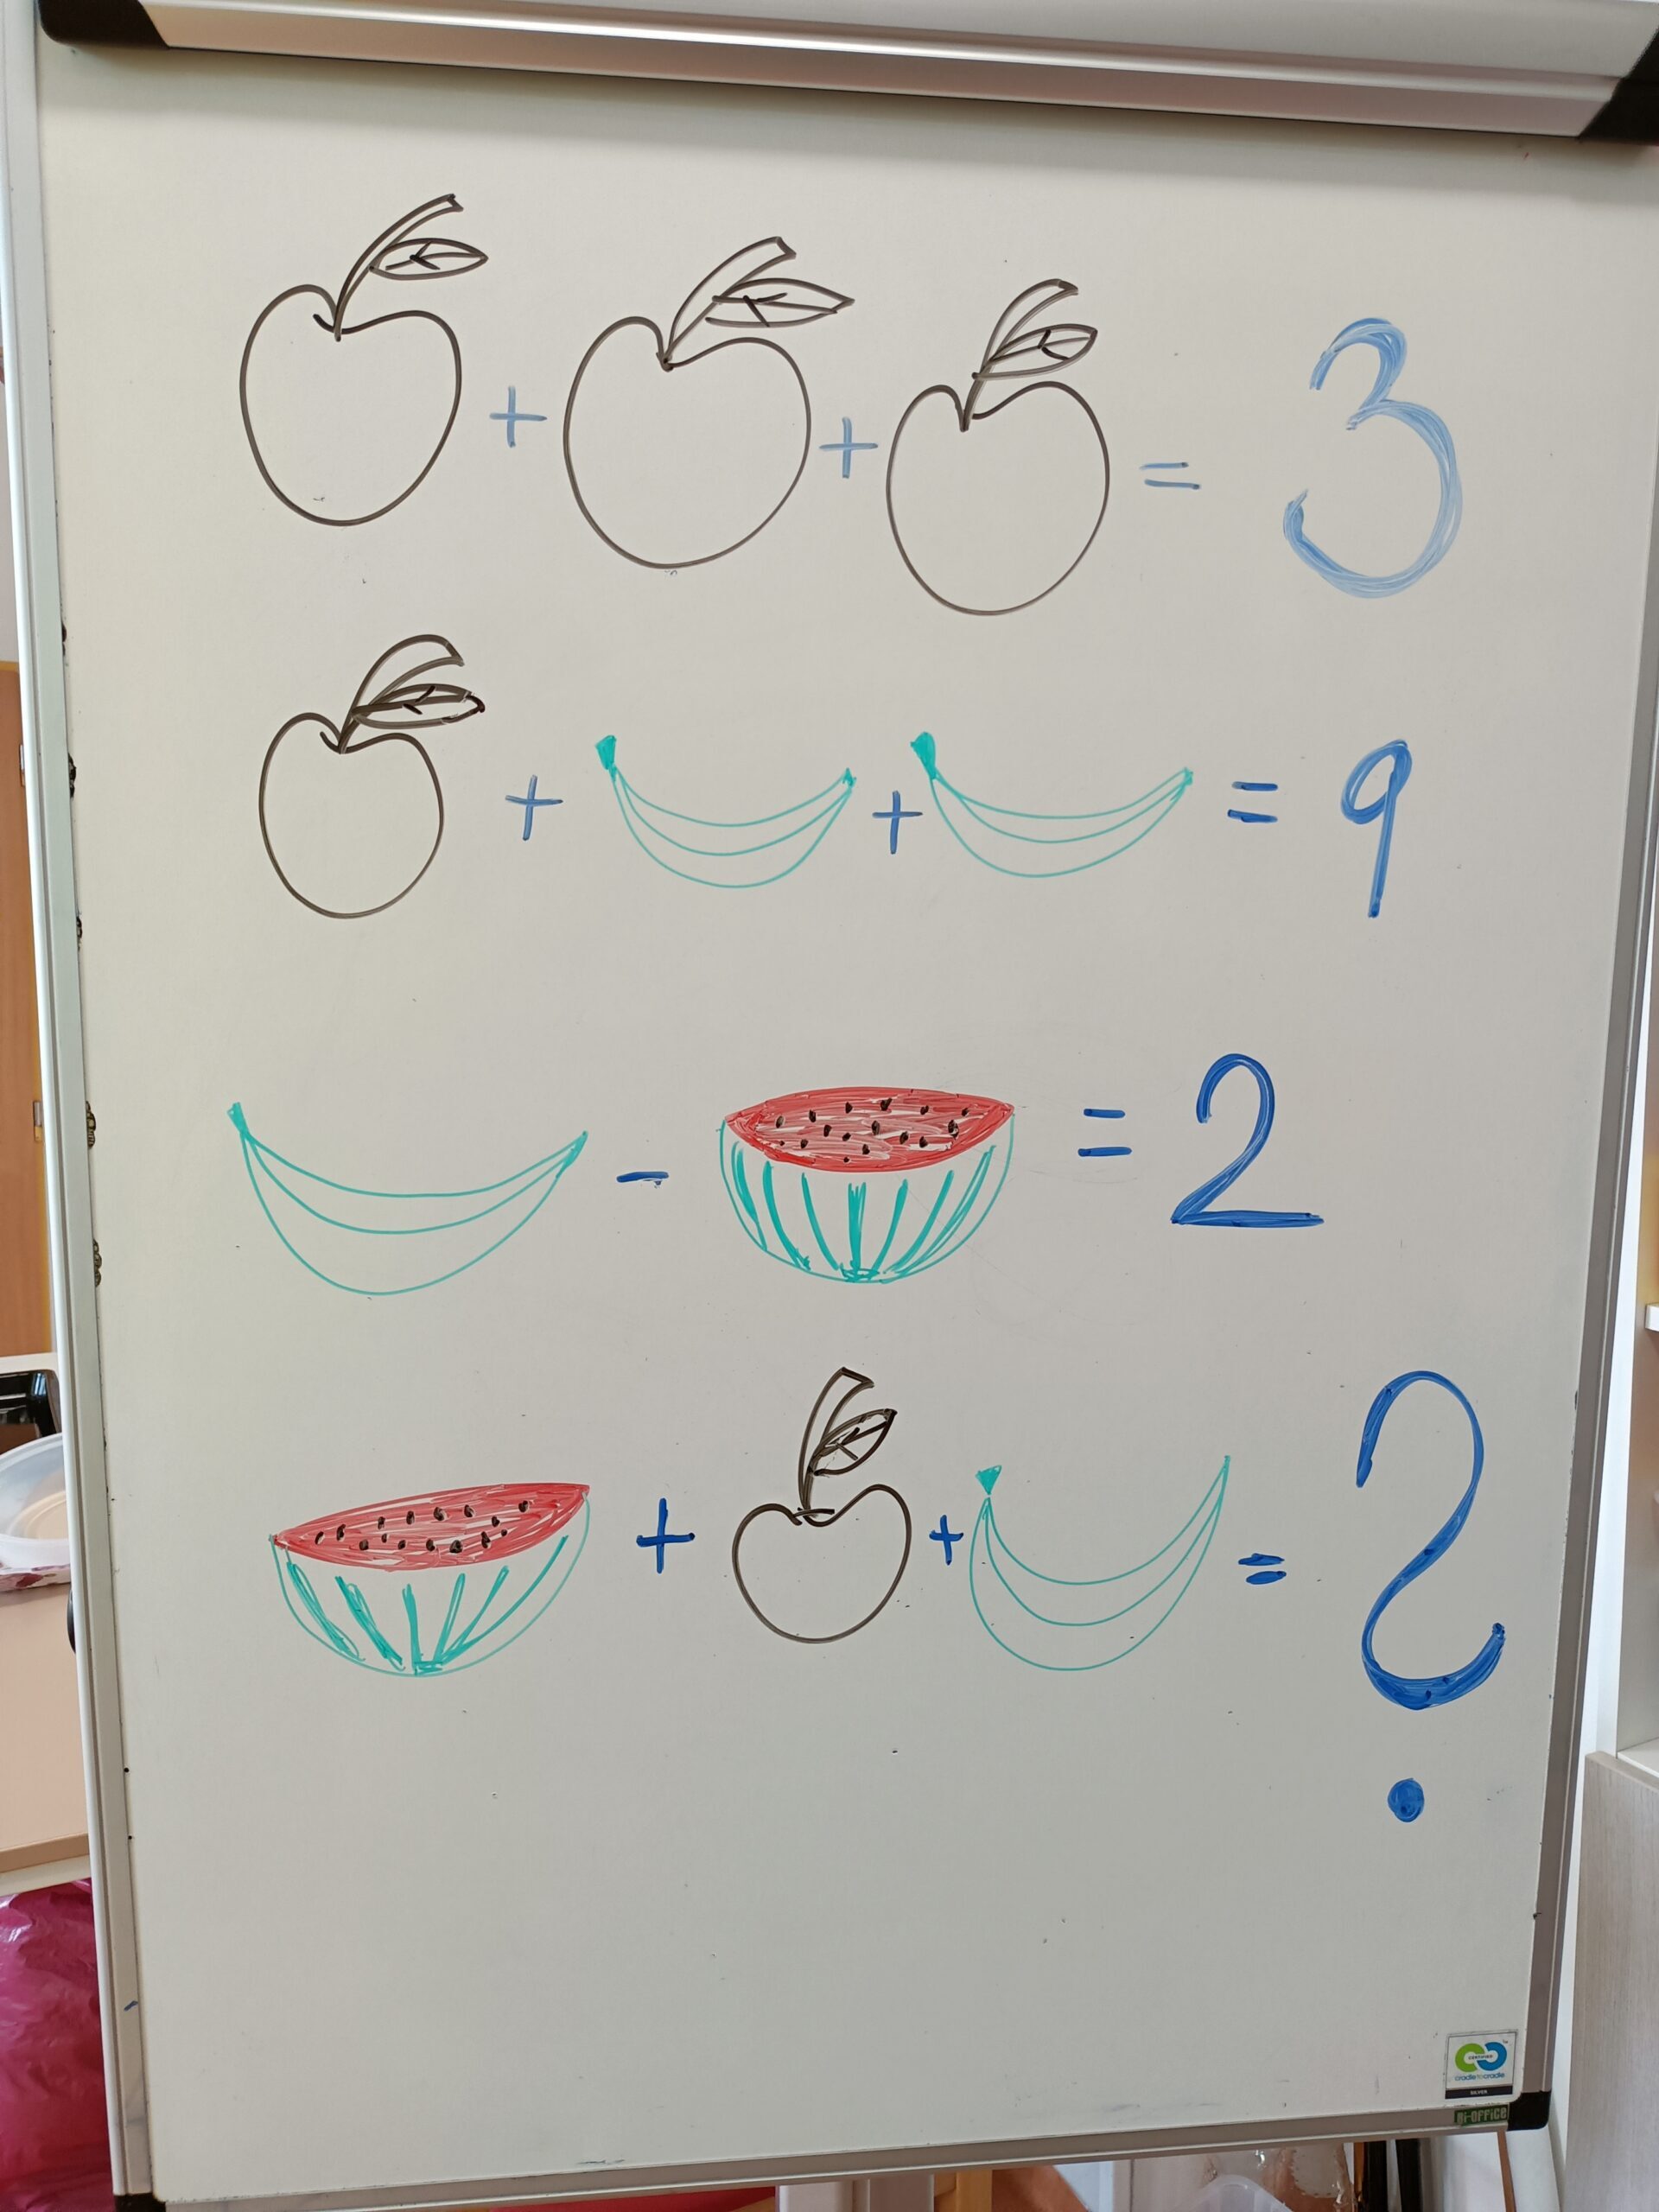 + + = 3
+ + = 9
- = 2
+ + = ?
CERTIFIED
cradletocradle
SILVER
BI-OFFICE